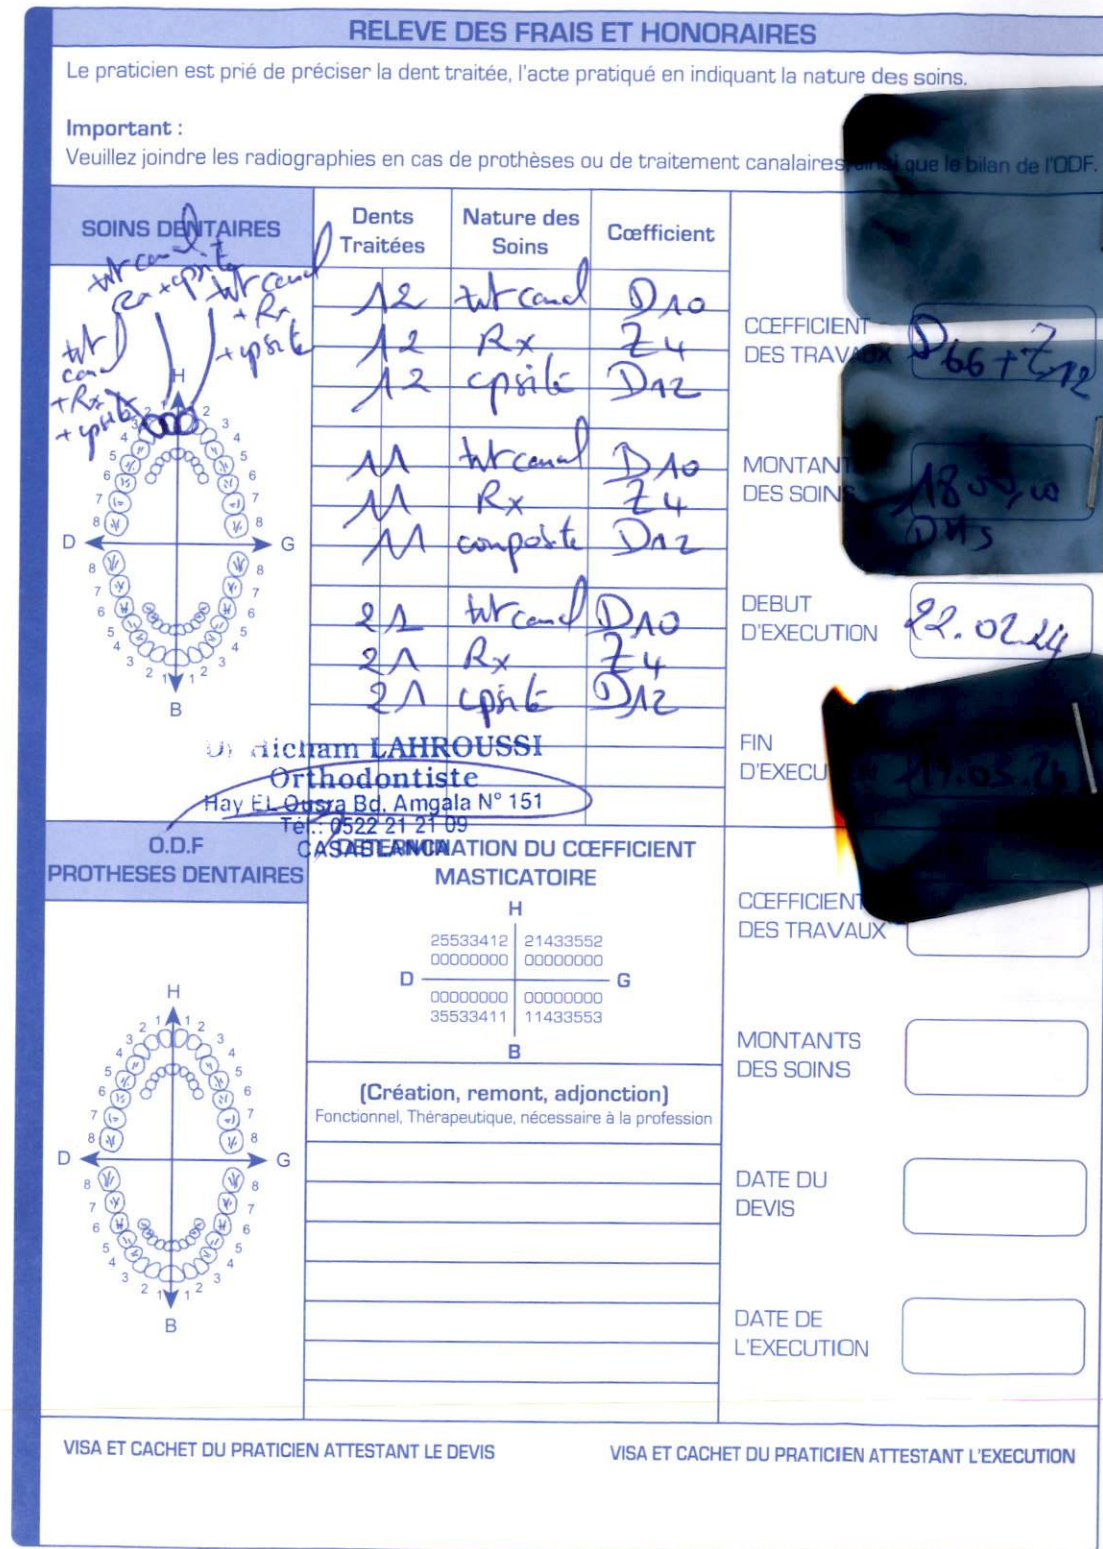 RELEVE DES FRAIS ET HONORAIRES
Le praticien est prié de préciser la dent traitée, l'acte pratiqué en indiquant la nature des soins.
Important :
Veuillez joindre les radiographies en cas de prothèses ou de traitement canalaires, ainsi que le bilan de l'ODF.
SOINS DENTAIRES
Dents Traitées
Nature des Soins
Cœfficient
12 trt canal D10
12 Rx Z4
12 cpsite D12
11 trt canal D10
11 Rx Z4
11 composite D12
21 trt canal D10
21 Rx Z4
21 cpsite D12
trt canal
Rx + cpsite
trt canal
+ Rx
+ cpsite
trt
canal
+ Rx
+ cpsite
H
D G
B
COEFFICIENT
DES TRAVAUX
D66 + Z12
MONTANT
DES SOINS
1800,00
DHS
DEBUT
D'EXECUTION
22.02.24
FIN
Dr Hicham LAHROUSSI
Orthodontiste
Hay EL Ousra Bd. Amgala N° 151
Tél.: 0522 21 21 09
CASABLANCA
O.D.F
PROTHESES DENTAIRES
DETERMINATION DU CŒFFICIENT
MASTICATOIRE
H
25533412 21433552
00000000 00000000
D G
00000000 00000000
35533411 11433553
B
(Création, remont, adjonction)
Fonctionnel, Thérapeutique, nécessaire à la profession
H
D G
B
CŒFFICIENT
DES TRAVAUX
MONTANTS
DES SOINS
DATE DU
DEVIS
DATE DE
L'EXECUTION
VISA ET CACHET DU PRATICIEN ATTESTANT LE DEVIS
VISA ET CACHET DU PRATICIEN ATTESTANT L'EXECUTION